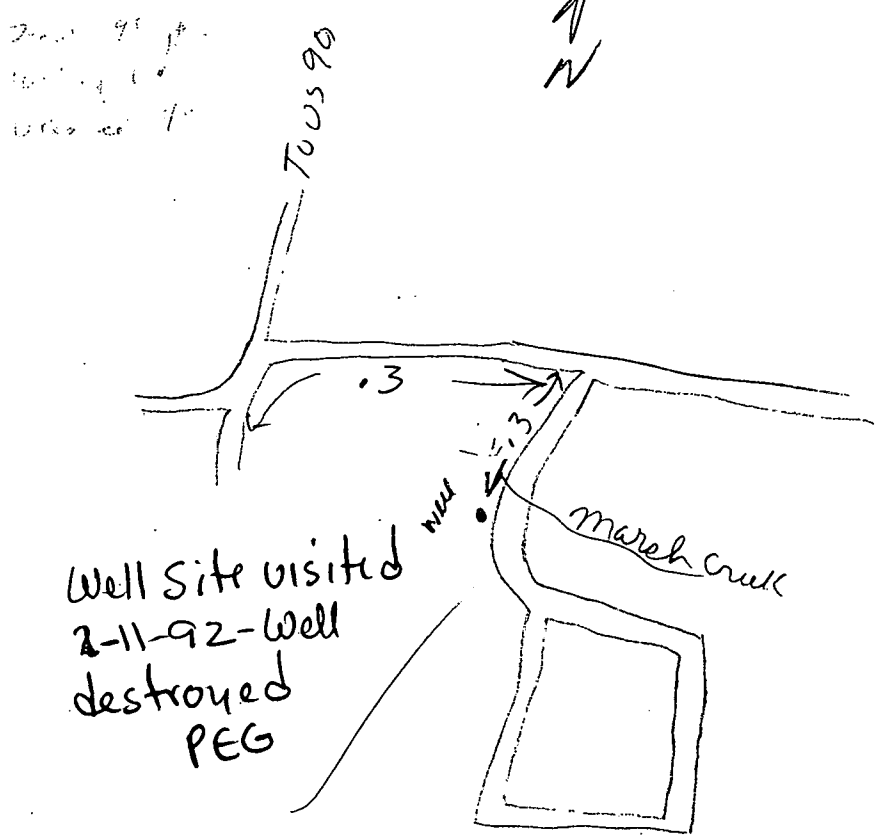 N
To US 90
.3
.3
well
Marsh Creek
Well Site visited
2-11-92-Well
destroyed
PEG